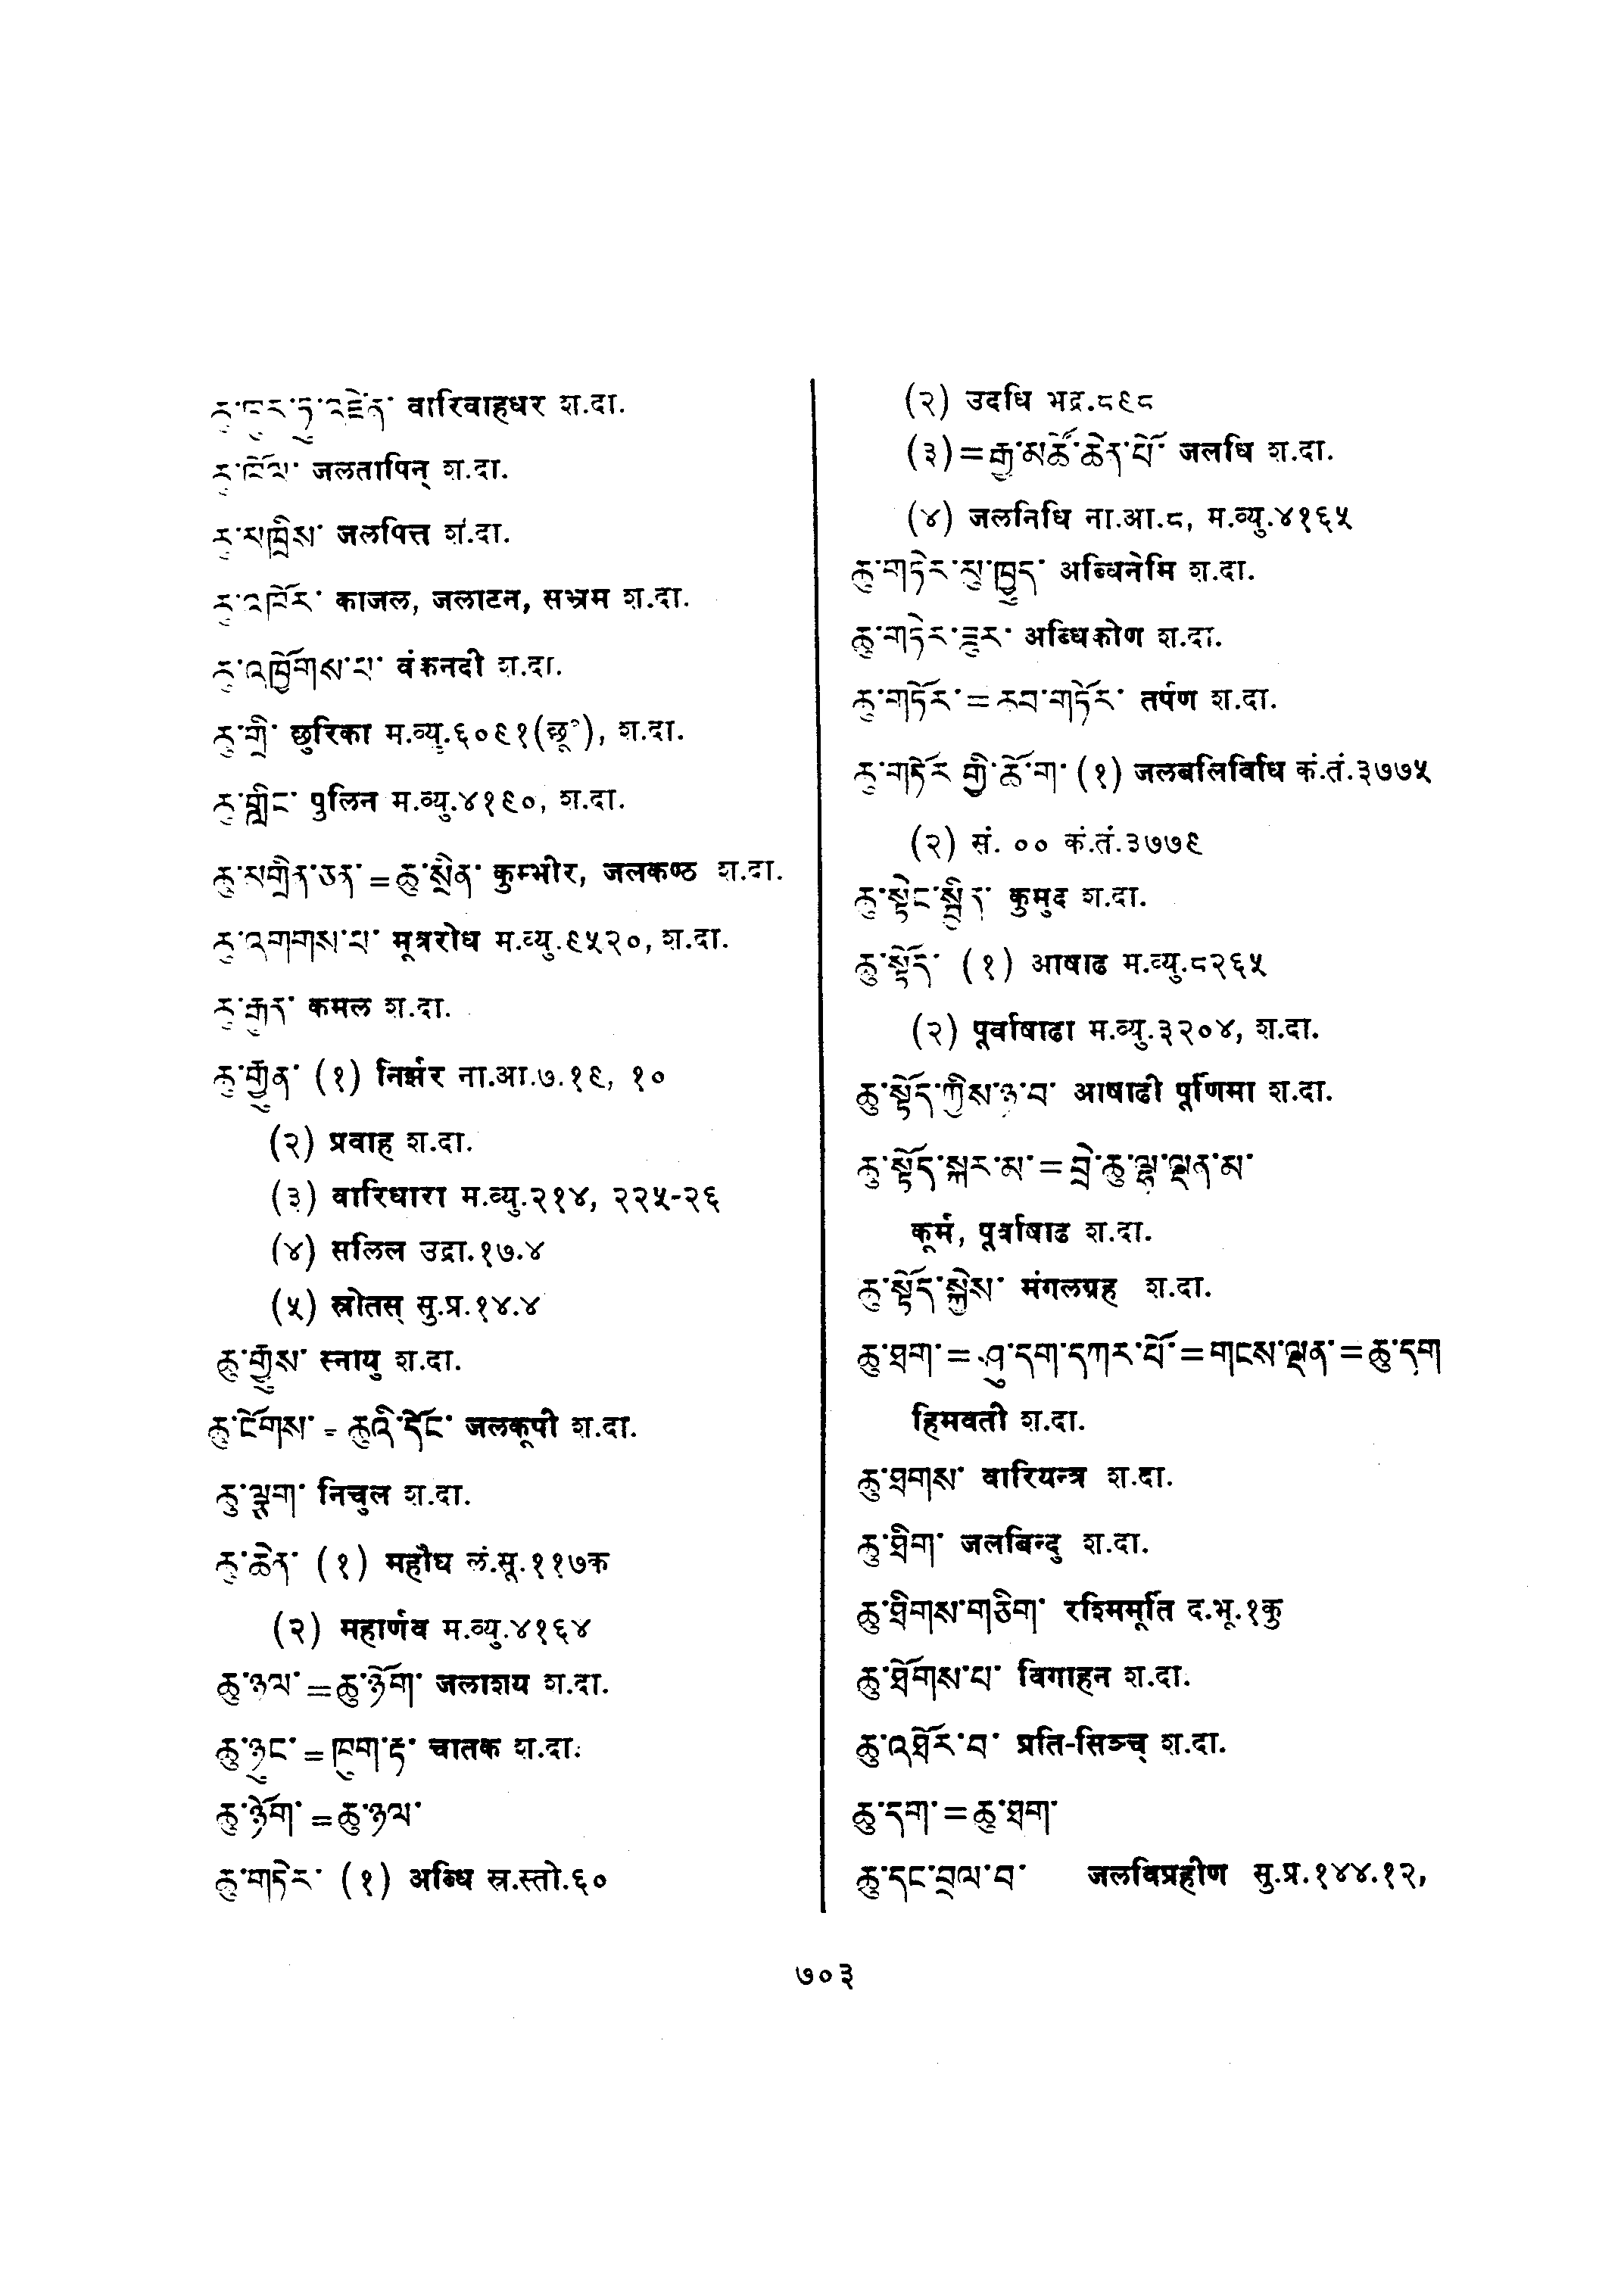 ཆུ་ཁུར་ཏུ་འཛིན་ वारिवाहधर श.दा.
ཆུ་ཁོལ་ जलतापिन् श.दा.
ཆུ་མཁྲིས་ जलपित्त श.दा.
ཆུ་འཁོར་ काजल, जलाटन, सभ्रम श.दा.
ཆུ་འཁྱོགས་པ་ वंकनदी श.दा.
ཆུ་གྲི་ छुरिका म.व्यु.६०९१(छू°), श.दा.
ཆུ་གླིང་ पुलिन म.व्यु.४१९०, श.दा.
ཆུ་མགྲིན་ཅན་=ཆུ་སྲིན་ कुम्भीर, जलकण्ठ श.दा.
ཆུ་འགགས་པ་ मूत्ररोध म.व्यु.९५२०, श.दा.
ཆུ་རྒུད་ कमल श.दा.
ཆུ་རྒྱུན་ (१) निर्झर ना.आ.७.१९, १०
(२) प्रवाह श.दा.
(३) वारिधारा म.व्यु.२१४, २२५-२६
(४) सलिल उद्रा.१७.४
(५) स्रोतस् सु.प्र.१४.४
ཆུ་རྒྱུས་ स्नायु श.दा.
ཆུ་ངོགས་ = ཆུའི་དོང་ जलकूपी श.दा.
ཆུ་ལྕུག་ निचुल श.दा.
ཆུ་ཆེན་ (१) महौघ लं.सू.११७क
(२) महार्णव म.व्यु.४१६४
ཆུ་ཉལ་=ཆུ་ཉོག་ जलाशय श.दा.
ཆུ་ཉུང་=ཁུག་རྟ་ चातक श.दा.
ཆུ་ཉོག་=ཆུ་ཉལ་
ཆུ་གཏེར་ (१) अब्धि स्र.स्तो.६०
(२) उदधि भद्र.८९८
(३)=རྒྱ་མཚོ་ཆེན་པོ་ जलधि श.दा.
(४) जलनिधि ना.आ.८, म.व्यु.४१६५
ཆུ་གཏེར་མུ་ཁྱུད་ अब्धिनेमि श.दा.
ཆུ་གཏེར་ཟུར་ अब्धिकोण श.दा.
ཆུ་གཏོར་=ཆབ་གཏོར་ तर्पण श.दा.
ཆུ་གཏོར་གྱི་ཆོ་ག་ (१) जलबलिविधि कं.तं.३७७५
(२) सं. ०० कं.तं.३७७९
ཆུ་སྟེང་སྦྲིད་ कुमुद श.दा.
ཆུ་སྟོད་ (१) आषाढ म.व्यु.८२६५
(२) पूर्वाषाढा म.व्यु.३२०४, श.दा.
ཆུ་སྟོད་ཀྱིས་ཉ་བ་ आषाढी पूर्णिमा श.दा.
ཆུ་སྟོད་སྐར་མ་=བྲེ་ཆུ་ལྷ་ལྡན་མ་
कूर्म, पूर्वाषाढ श.दा.
ཆུ་སྟོད་སྐྱེས་ मंगलग्रह श.दा.
ཆུ་ཐག་=ཤུ་དག་དཀར་པོ་=གངས་ལྡན་=ཆུ་དག
हिमवती श.दा.
ཆུ་ཐགས་ वारियन्त्र श.दा.
ཆུ་ཐིག་ जलबिन्दु श.दा.
ཆུ་ཐིགས་གཅིག་ रश्मिमूर्ति द.भू.१कु
ཆུ་ཐོགས་པ་ विगाहन श.दा.
ཆུ་འཐོར་བ་ प्रति-सिञ्च् श.दा.
ཆུ་དག་=ཆུ་ཐག་
ཆུ་དང་བྲལ་བ་ जलविप्रहीण सु.प्र.१४४.१२,
७०३